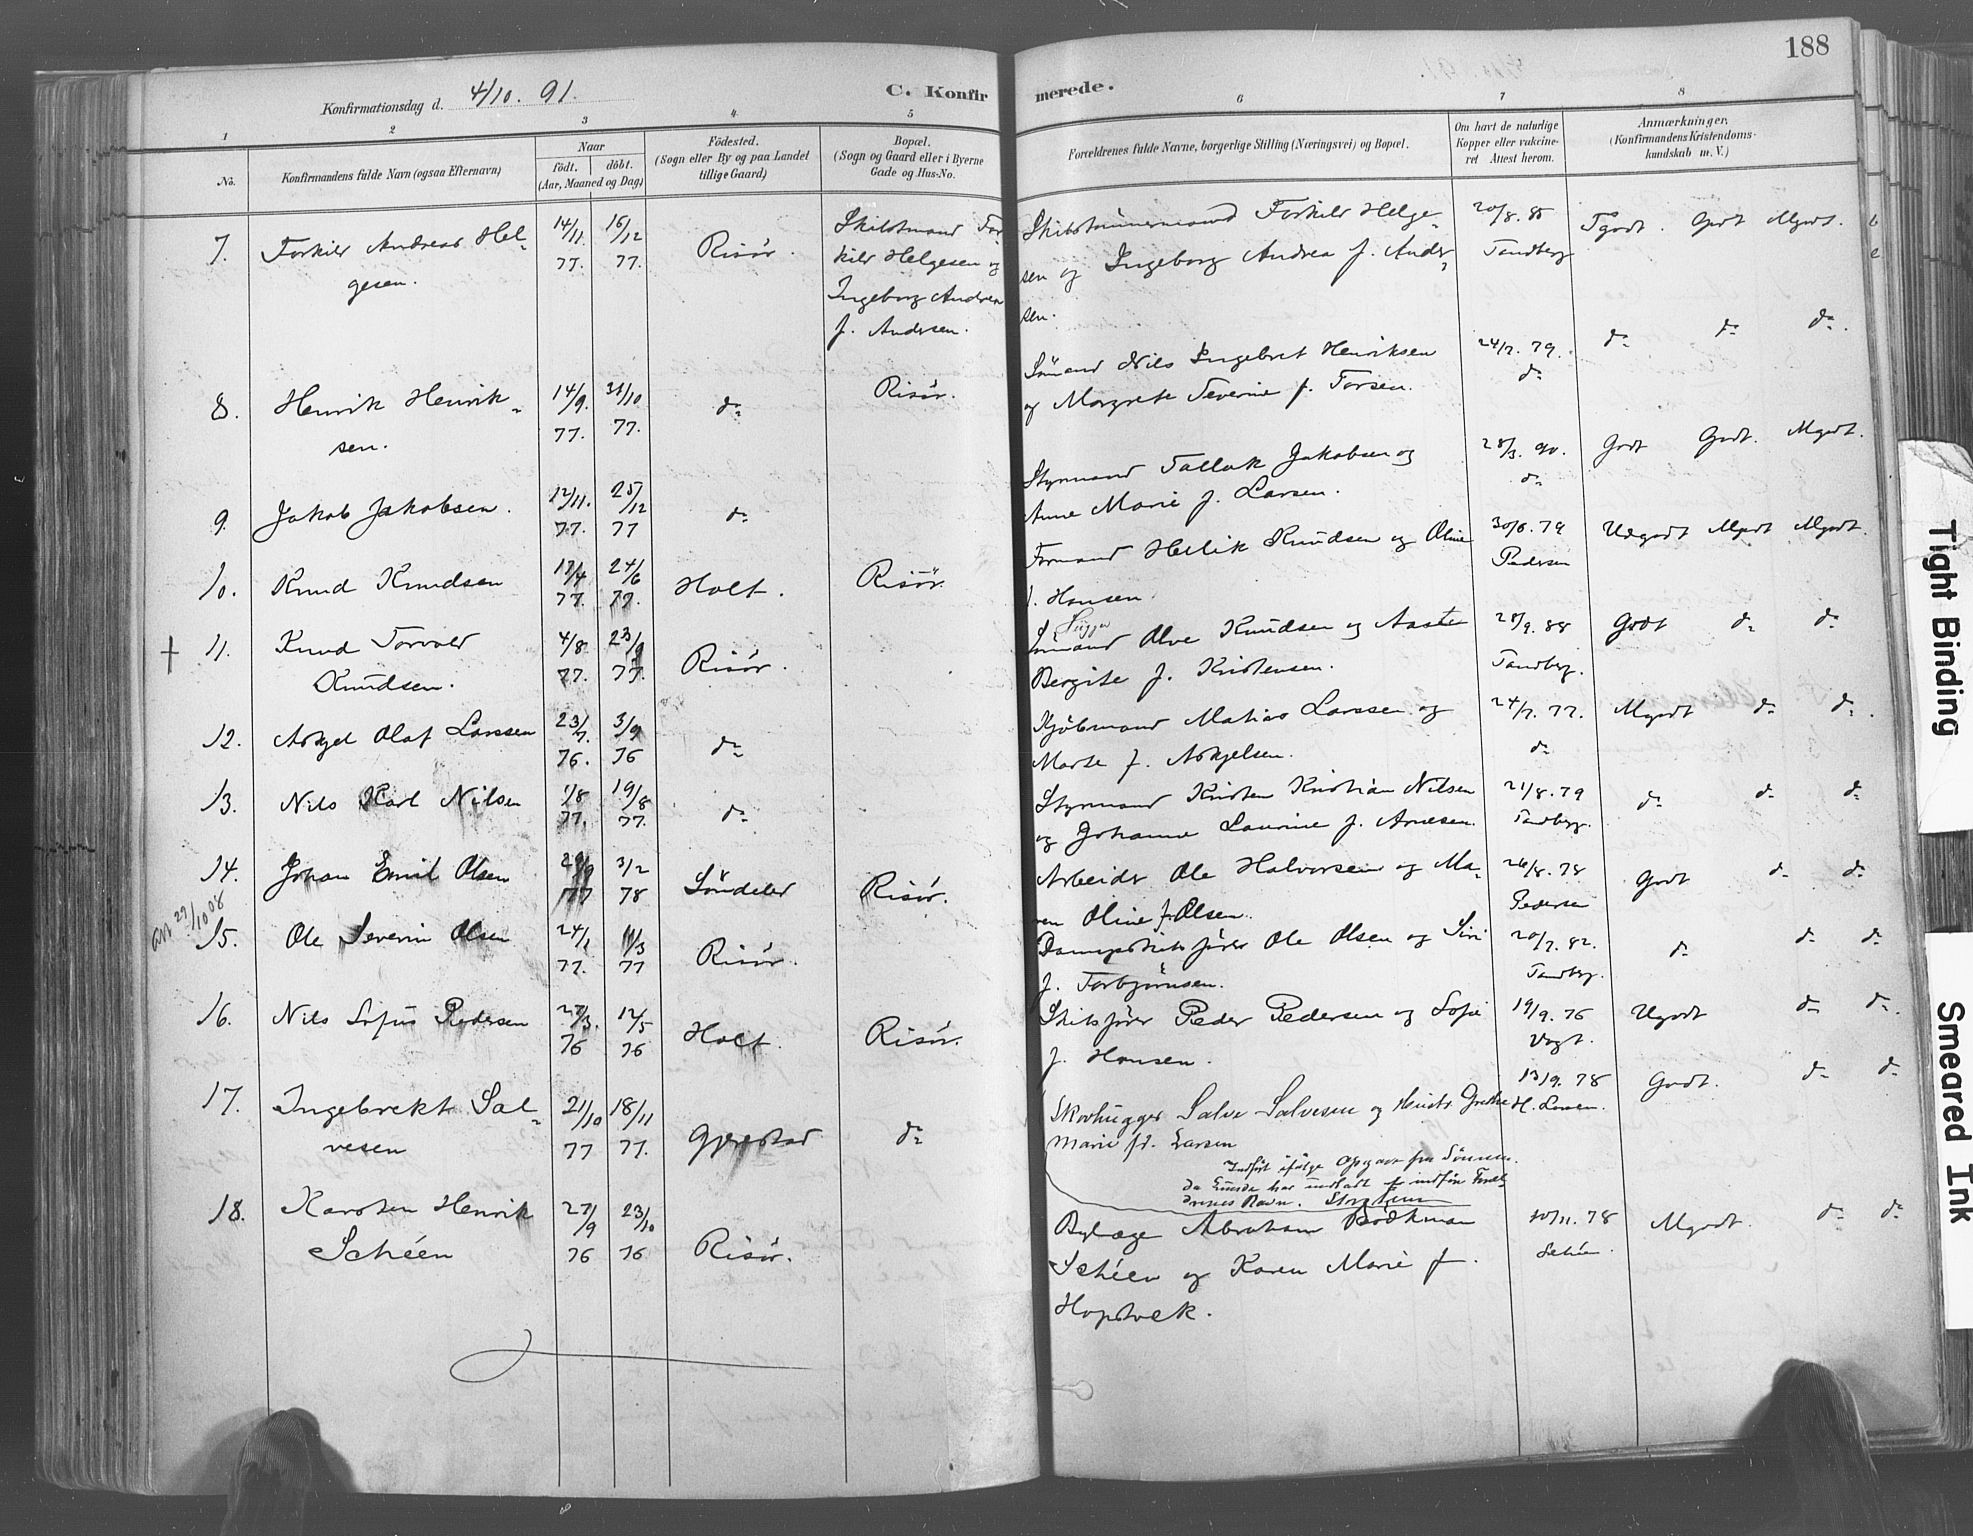 188
Konfirmationsdag d. 4/10. 91.
C. Konfirmerede.
1 2 3 4 5 6 7 8
No.
Konfirmandens fulde Navn (ogsaa Efternavn)
Naar
født. døbt.
(Aar, Maaned og Dag)
Fødested.
(Sogn eller By og paa Landet
tillige Gaard)
Bopæl.
(Sogn og Gaard eller i Byerne
Gade og Hus-No.
Forældrenes fulde Navne, borgerlige Stilling (Næringsvei) og Bopæl.
Om havt de naturlige
Kopper eller vakcine-
ret Attest herom.
Anmærkninger.
(Konfirmandens Kristendoms-
kundskab m. V.)
7. Torkild Andreas Hel-
gesen.
14/11. 77. 16/12 77.
Risør.
Skibstmand Tor
kild Helgesen og
Ingeborg Andrea
f. Andersen.
Skibstømmermand Torkild Helge-
sen og Ingeborg Andrea f. Ander-
sen.
20/8. 85
Tandberg
Tgodt. Godt Mgodt.
8. Henrik Henrik-
sen.
14/9. 77. 31/10 77.
do
Risør.
Sømand Nils Ingebret Henriksen
og Margrete Severine f. Torsen.
24/7. 79.
do
do do do.
9. Jakob Jakobsen.
12/11. 77. 25/12 77
do
Styrmand Tallak Jakobsen og
Anne Marie f. Larsen.
28/3. 90.
do
Godt Godt. Mgodt.
10. Knud Knudsen
17/4 77. 24/6 77.
Holt.
Risør.
Formand Hellik Knudsen og Oline
f. Hansen.
30/6. 79
Pedersen
Udgodt Mgodt Mgodt.
+ 11. Knud Torvald
Knudsen.
4/8 77. 23/9 77.
Risør.
Sømand Olve Knudsen og Aaste
Bergite f. Kristensen.
28/9. 88
Tandberg.
Godt do do
12. Askjel Olaf Larssen
23/7. 76. 3/9 76
do
Kjøbmand Matias Larssen og
Marte f. Askjelsen.
24/7. 77.
do
Mgodt do do.
13. Nils Karl Nilsen
1/8 77. 19/8 77.
do
Styrmand Kristen Kristian Nilsen
og Johanne Laurine f. Arnesen.
21/8. 79
Tandberg.
do do do
14. Johan Emil Olsen
29/9 77 3/2 78
Søndeled
Risør.
Arbeider Ole Halvorsen og Ma-
ren Oline f. Olsen.
26/8. 78
Pedersen
Godt do do
29/10 08
15. Ole Severin Olsen
24/1 77. 11/3 77
Risør.
Dampskibsfører Ole Olsen og Siri
f. Torbjørnsen.
20/7. 82.
Tandberg.
do do do
16. Nils Sofus Pedersen
27/3. 76 12/5 76
Holt.
Risør.
Skibsfører Peder Pedersen og Sofie
f. Hansen.
19/9. 76
Vogt.
Ugodt do do.
17. Ingebrekt Sal-
vesen
21/10 77 18/11 77.
Gjerstad
do
Skovhugger Salve Salvesen og Hustr Grethe
Marie fd. Larsen
13/9. 78
H. Larsen.
Godt. do do
Indført ifølge Opgave fra Sønnen.
da Gunde har undladt at indføre Foræl-
drenes Navn.
18. Karsten Henrik
Schéen
27/9 76 23/10 76
Risør.
Bylæge Abraham Bødtman
Schéen og Karen Marie f.
Hopstock.
10/11. 78
Schéen.
Mgodt. do do
Tight Binding
Smeared Ink